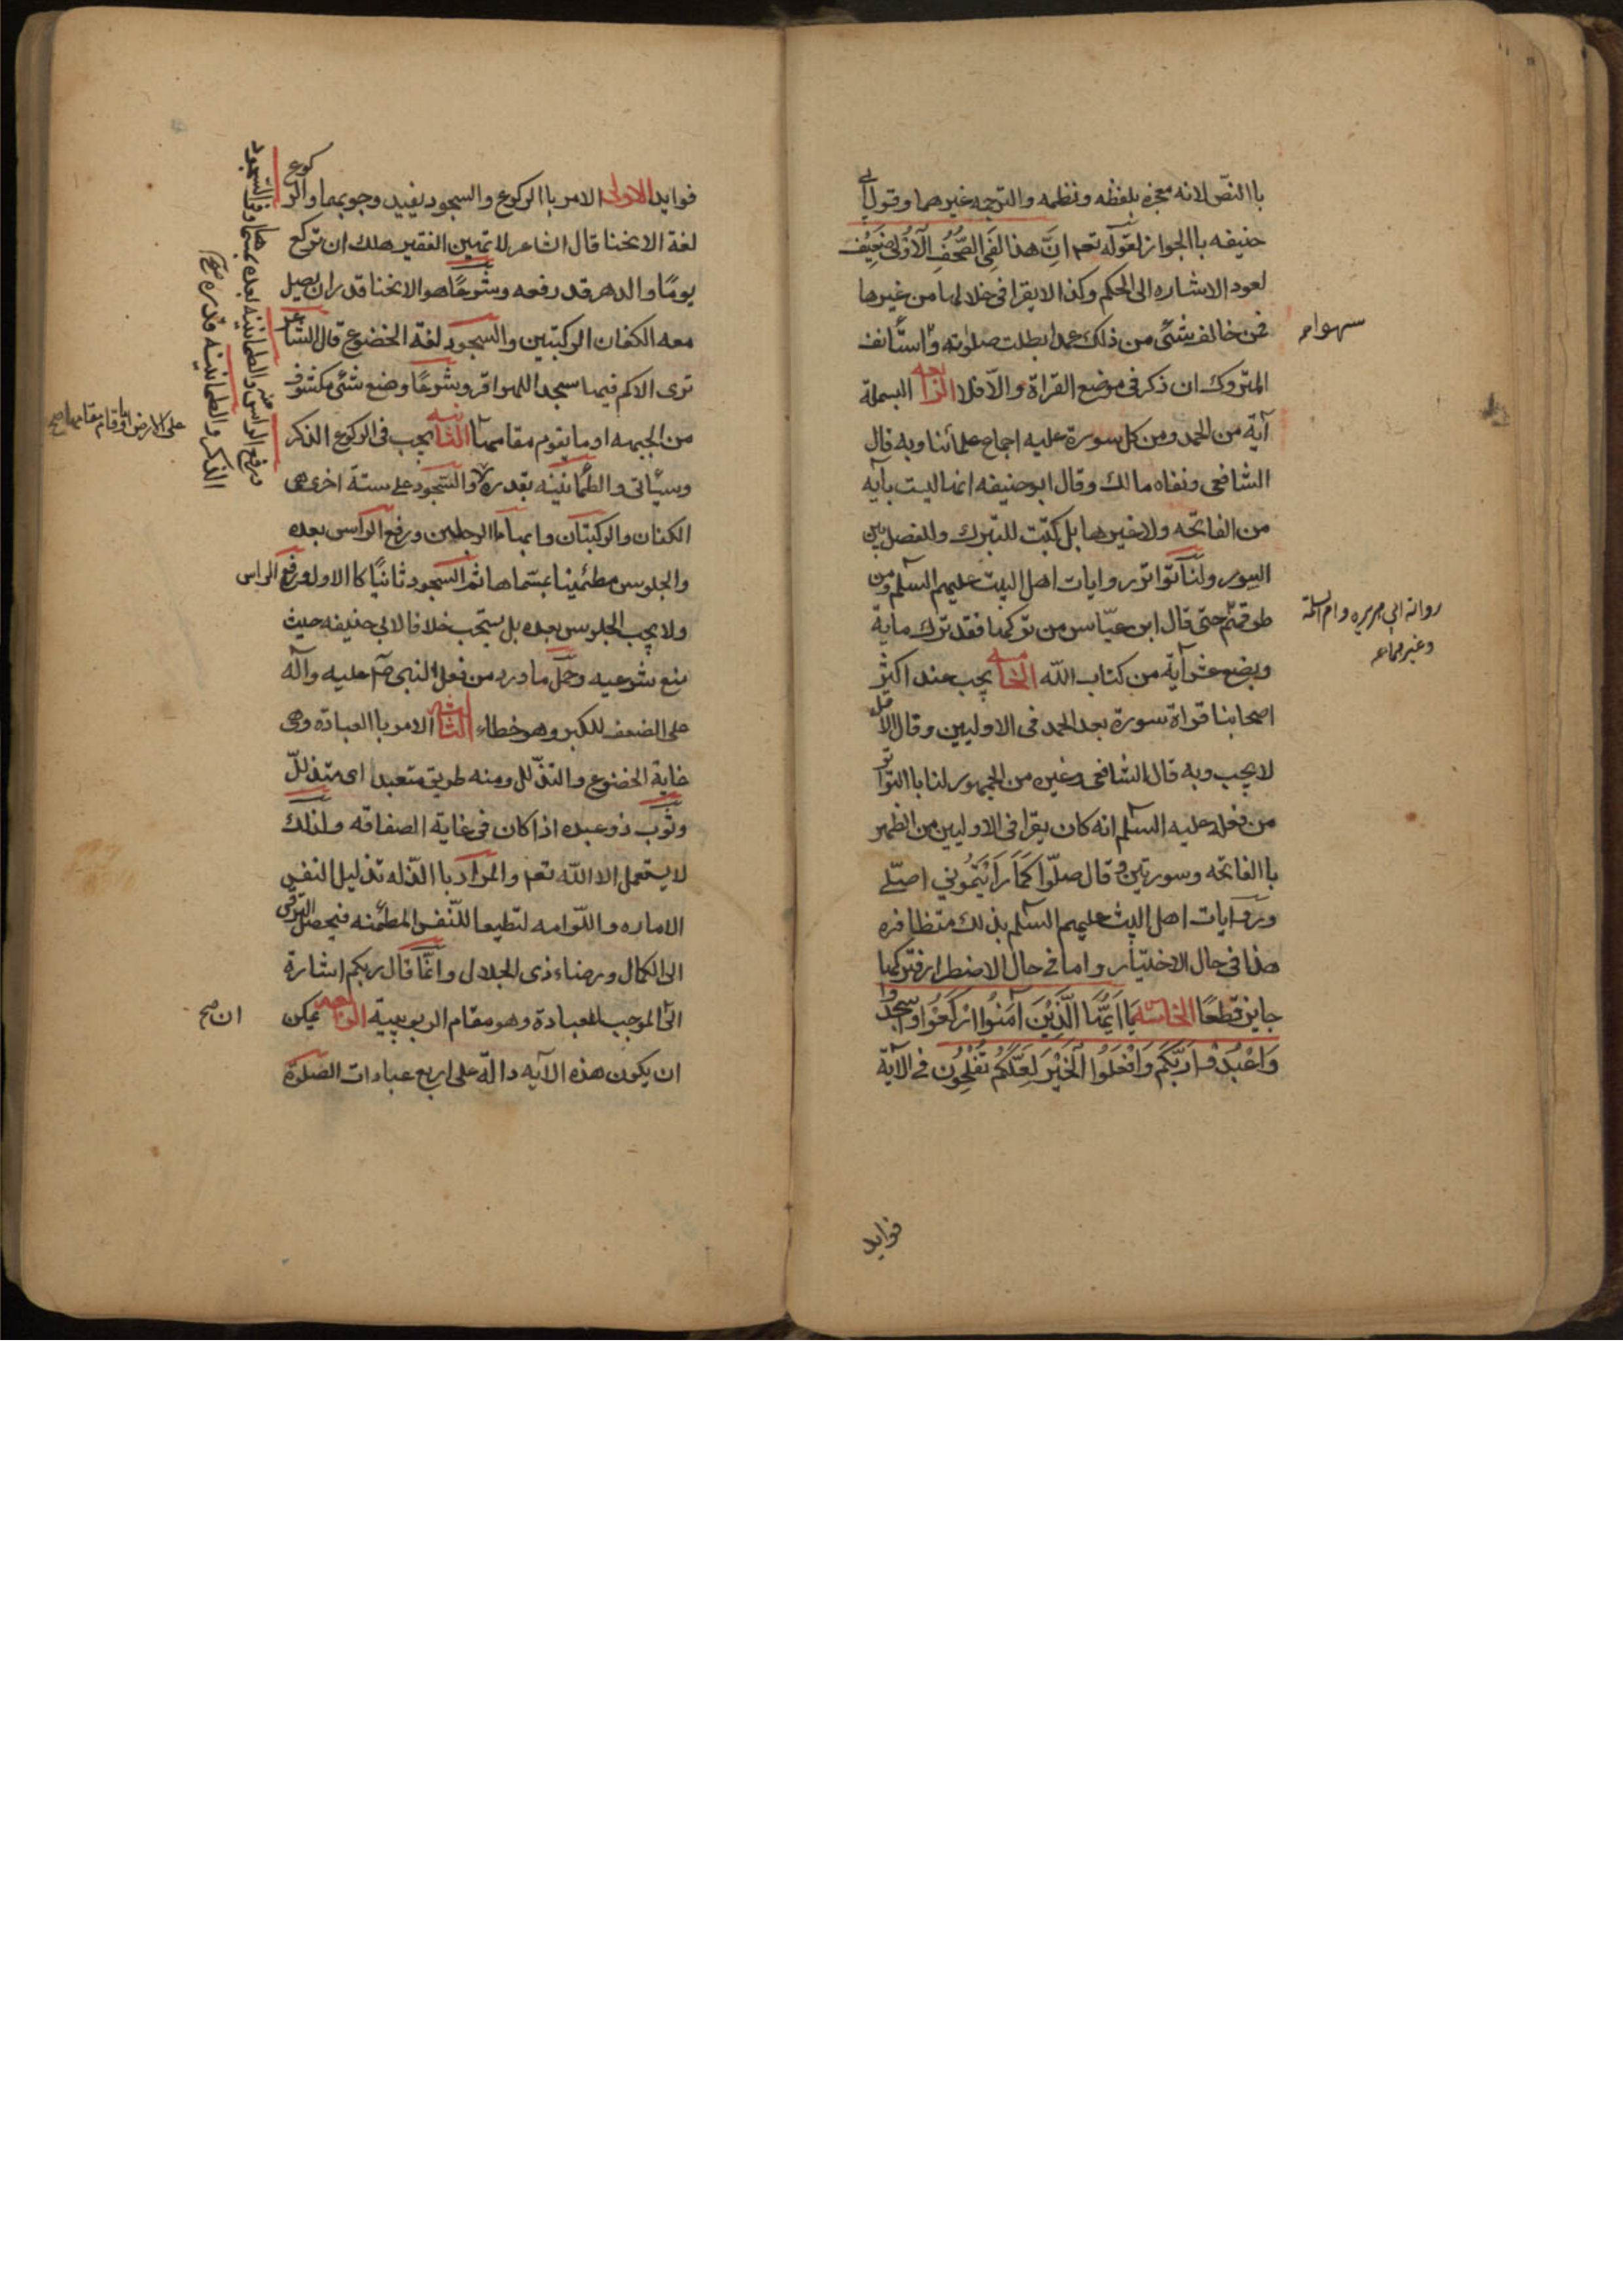 باالنص لانه معجزه بلفظه ونظمه والترجمه غيرهما وقول ابى
حنيفه باالجواز لقوله تعم اِنَّ هذا لَفِى الصُّحُفِ الْاُوُلى ضعيف
لعود الاشاره الى الحكم وكذا لايقرا فى خلالها من غيرها
فمن خالف شئى من ذلك عمدا بطلت صلوته واستانف
سهوا م
المتروك ان ذكر فى موضع القراة والّا فلا الرابعه البسملة
آية من الحمد ومن كل سورة عليه اجماع علمائنا وبه قال
الشافعى ونفاه مالك وقال ابوحنيفه انها ليست بآيه
من الفاتحه ولا غيرها بل كتبت للتبرك وللفصل بين
السور ولنا تواتر روايات اهل البيت عليهم السلم ومن
طرقهم حتى قال ابن عبّاس من تركها فقد ترك ماية
رواية ابى هريره وام سلمة
وغيرهما
وبضع عشر آية من كتاب اللّه الخامسه يجب عند اكثر
اصحابنا قراة سورة بعد الحمد فى الاوليين وقال الاقل
لايجب وبه قال الشافعى وغيره من الجمهور لنا باالتواتر
من فعله عليه السلم انه كان يقرا فى الاوليين من الظهر
باالفاتحه وسورتين وقال صلّوا كَمَا رَايْتَمُونِي اصلّي
وروايات اهل البيت عليهم السلم بذلك متظافره
هذا فى حال الاختيار واما فى حال الاضطرار فتركها
جايز قطعًا الخامسه يَا اَيُّهَا الَّذِيْنَ آمَنُوا ارْكَعُوا وَاسجدوا
وَاعْبُدُوا رَبَّكُم وَافْعَلُوا الْخَيْرَ لَعَلَّكُم تُفْلِحُون فى الآية
فوايد
فوايد الاولى الامر باالركوع والسجود يفيد وجوبهما والركوع
لغة الانحنا قال الشاعر لاتهين الفقير علك ان تركع
يومًا والدهر قد رفعه وشرعًا هو الانحنا قدر ان يصل
معه الكفان الركبتين والسجود لغة الخضوع قال الشاعر
ترى الاكم فيها سجدا للحوافر وشرعًا وضع شئى مكشوف
من الجبهه او مايقوم مقامها الثانيه يجب فى الركوع الذكر
على الارض او ماقام مقامها صح
وسيأتى والطمأنينه بقدره والسجود على ستة اخرى هى
الكفان والركبتان وابهاما الرجلين ورفع الراس بعده
والجلوس مطمئنا بمسماها ثم السجود ثانيًا كاالاول ورفع الراس
ولايجب الجلوس بعده بل يستحب خلافا لابى حنيفه حيث
منع شرعيه وحمل ما ورد من فعل النبى ص عليه وآله
على الضعف للكبر وهو خطاء الثالثه الامر باالعبادة وهى
غاية الخضوع والتذلل ومنه طريق متعبد اى متذلل
وثوب ذو عبده اذا كان فى غاية الصفاقه ولذلك
لايستعمل الا لله تعم والمراد باالذله تذليل النفس
الاماره واللوامه لتطيعا للنفس المطمئنه فيحصل الترقى
الى الكمال ورضاء ذى الجلال وانما قال ربكم اشارة
الى الموجب للعبادة وهو مقام الربوبية الرابعه يمكن
ان صح
ان يكون هذه الآيه دالة على اربع عبادات الصلوة
ورفع الراس منه والطمانينه بعده بمسماها وفى السجود
الذكر والطمانينه قدره صح